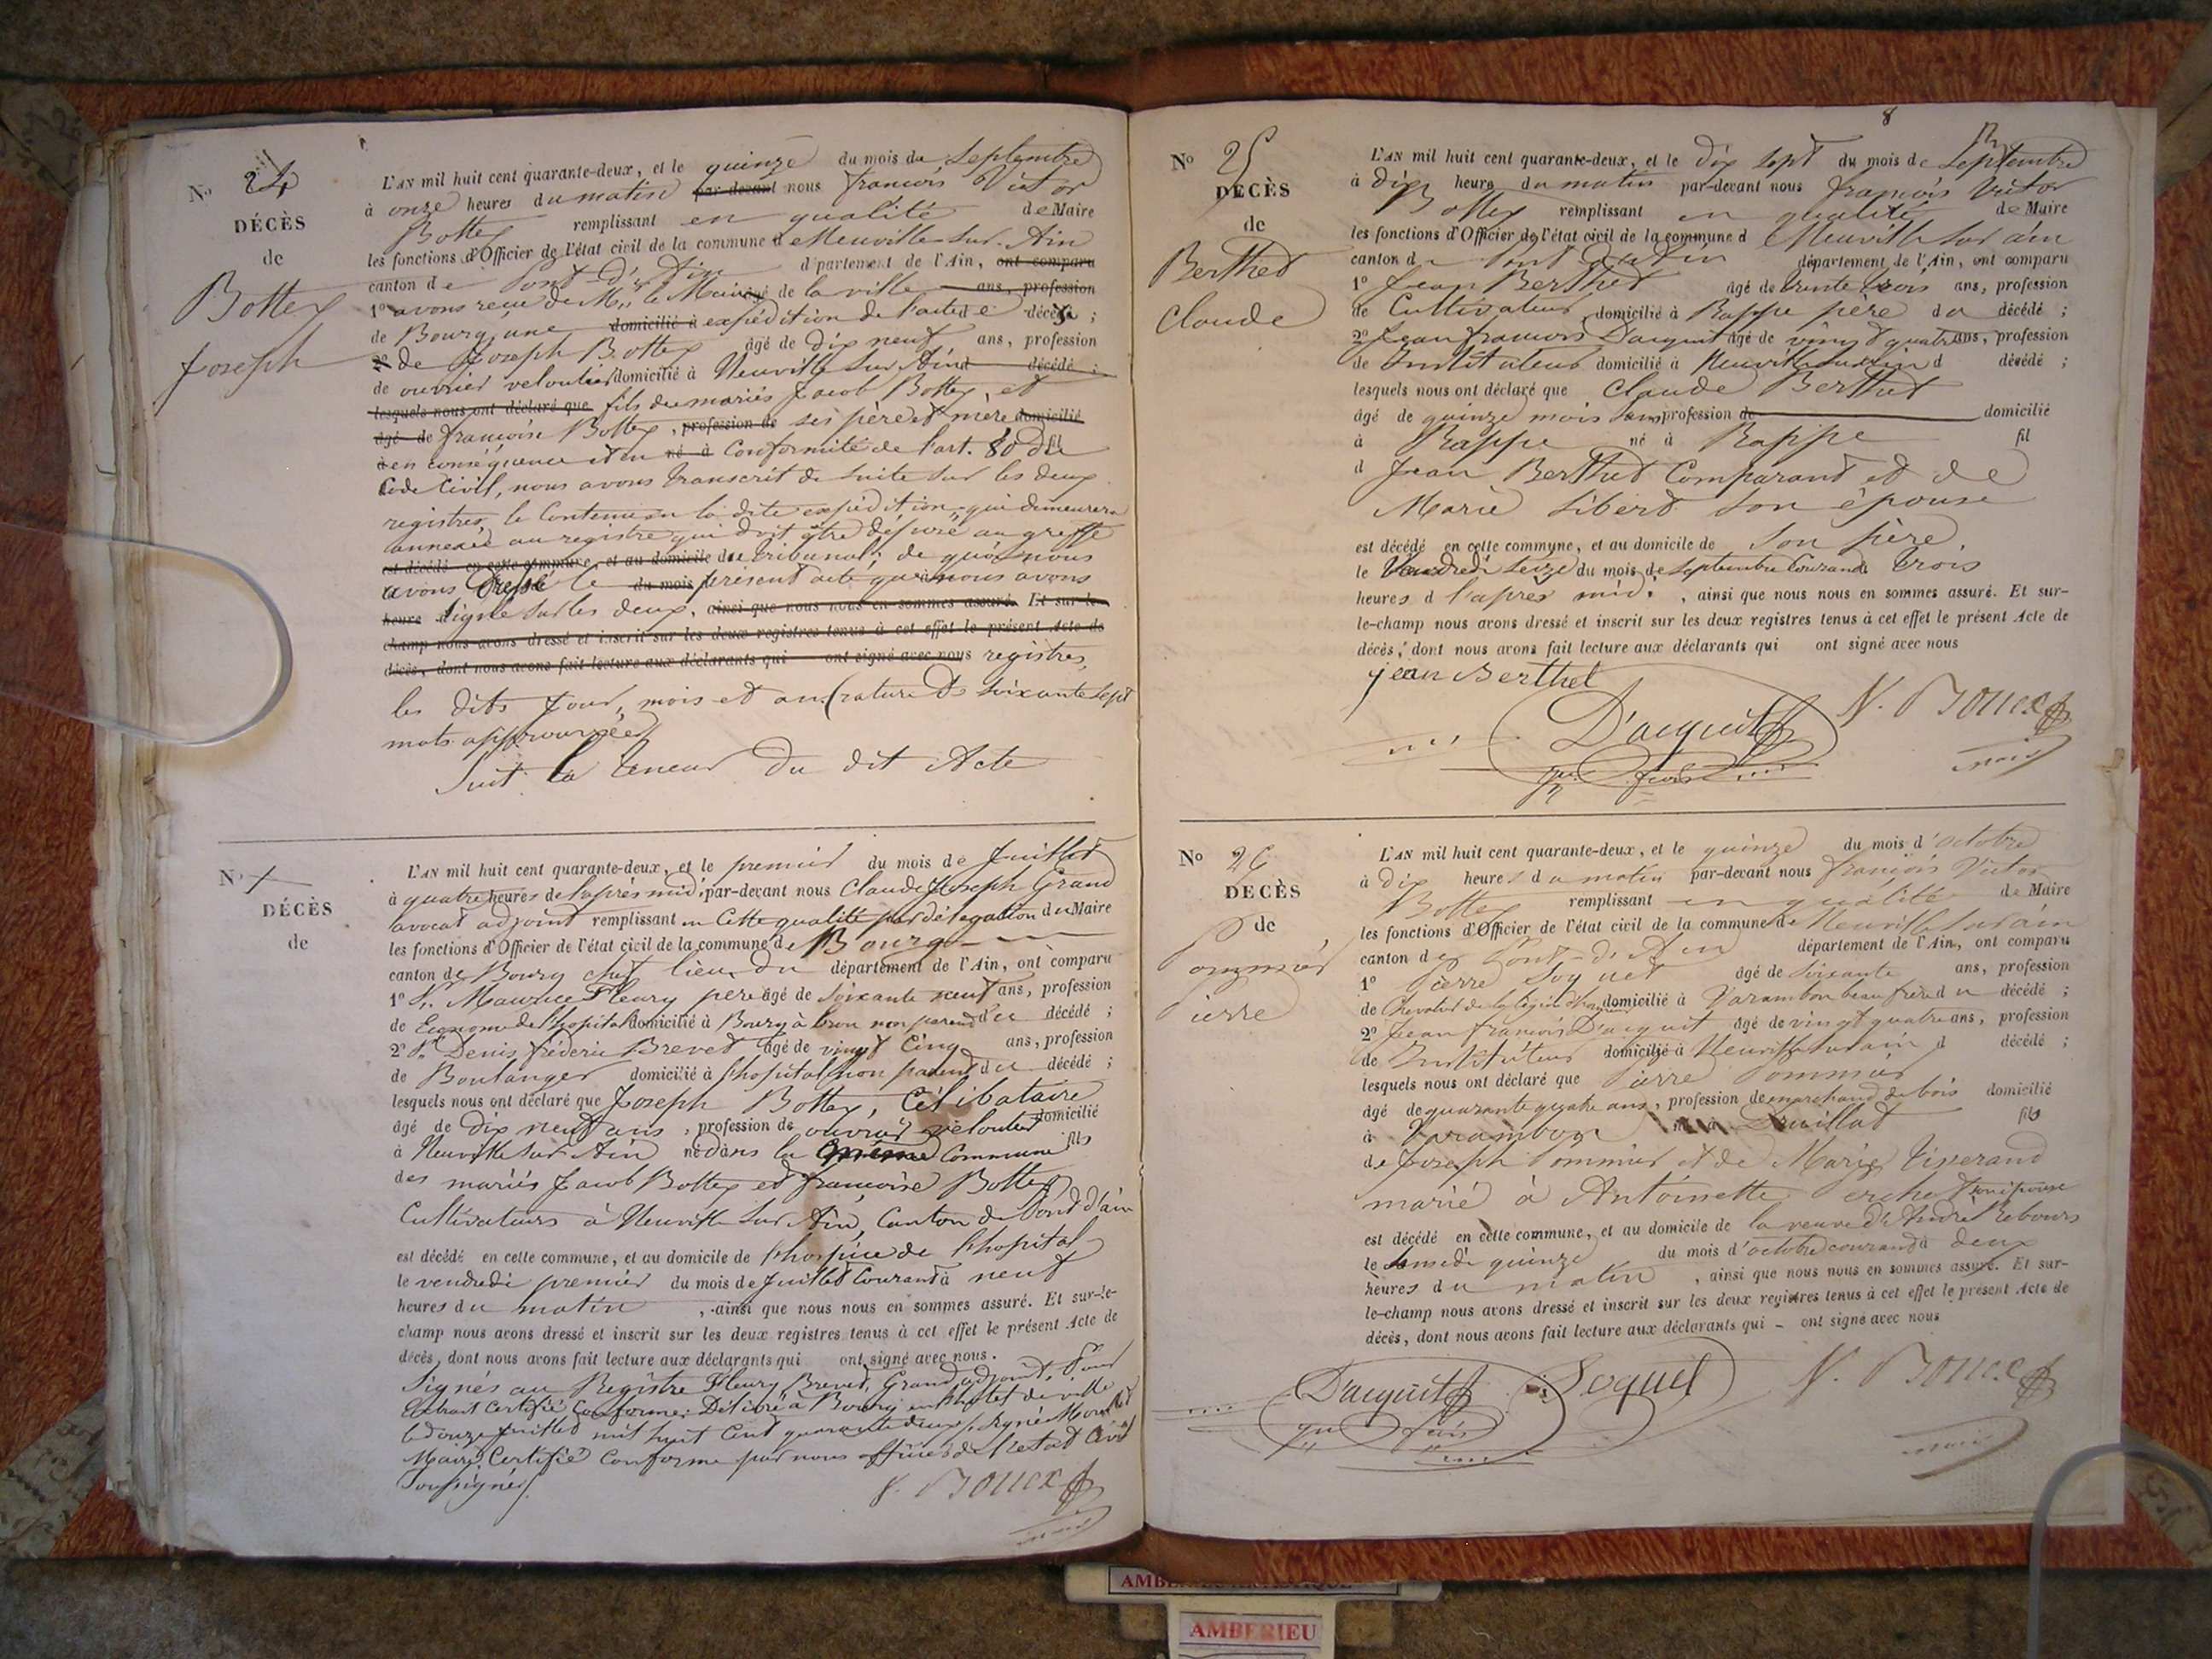 No 24
DÉCÈS
de
Bottex
Joseph
L'AN mil huit cent quarante-deux, et le quinze du mois de Septembre
à onze heures du matin par-devant nous françois Victor
Bottex remplissant en qualité de Maire
les fonctions d'Officier de l'état civil de la commune de Neuville sur Ain
canton de Pont-d'Ain département de l'Ain, ont comparu
1o avons reçu de Mr le Maire âgé de la ville ans, profession
de Bourg, une domicilié à expédition de l'acte de décès ;
2o de Joseph Bottex âgé de dix neuf ans, profession
de ouvrier veloutier domicilié à Neuville sur Ain d décédé ;
lesquels nous ont déclaré que fils des mariés Jacob Bottex et
âgé de françoise Bottex, profession de ses père et mère domicilié
à en conséquence et en né à Conformité de l'art. 80 du
Code Civil, nous avons transcrit de suite sur les deux
registres, le Contenu en la dite expédition, qui demeurera
annexée au registre qui doit être déposé au greffe
est décédé en cette commune, et au domicile du tribunal, de quoi nous
avons dressé le du mois présent acte que nous avons
heure signé sur les deux, ainsi que nous nous en sommes assuré. Et sur-le-
champ nous avons dressé et inscrit sur les deux registres tenus à cet effet le présent Acte de
décès, dont nous avons fait lecture aux déclarants qui ont signé avec nous registres,
les dits jour, mois et an. (rature de soixante sept
mots approuvée)
Suit la teneur du dit Acte
No
DÉCÈS
de
L'AN mil huit cent quarante-deux, et le premier du mois de Juillet
à quatre heures de l'après midi, par-devant nous Claude Joseph Grand
avocat adjoint remplissant en Cette qualité par délégation du Maire
les fonctions d'Officier de l'état civil de la commune de Bourg
canton de Bourg chef lieu du département de l'Ain, ont comparu
1o Sr. Maurice Fleury père âgé de soixante neuf ans, profession
de Econome de l'hopital domicilié à Bourg à Brou non parent du décédé ;
2o Sr. Denis fréderic Brevet âgé de vingt Cinq ans, profession
de Boulanger domicilié à l'hopital non parent du décédé ;
lesquels nous ont déclaré que Joseph Bottex, Célibataire
âgé de dix neuf ans, profession de ouvrier veloutier domicilié
à Neuville sur Ain né dans la même Commune fils
des mariés Jacob Bottex et françoise Bottex
Cultivateurs à Neuville sur Ain, Canton de Pont d'ain
est décédé en cette commune, et au domicile de l'hospice de l'hopital
le vendredi premier du mois de Juillet Courant à neuf
heures du matin, ainsi que nous nous en sommes assuré. Et sur-le-
champ nous avons dressé et inscrit sur les deux registres tenus à cet effet le présent Acte de
décès, dont nous avons fait lecture aux déclarants qui ont signé avec nous.
Signés au Registre Fleury Brevet, Grand, adjoint, Pour
Extrait Certifié Conforme; Délivré à Bourg en l'hotel de ville
le douze Juillet mil huit Cent quarante deux, signé
Maire, Certifié Conforme par nous officier de l'état Civil
Soussigné
V. Bottex
maire
8
No 25
DÉCÈS
de
Berthet
Claude
L'AN mil huit cent quarante-deux, et le dix sept du mois de Septembre
à dix heure du matin par-devant nous françois Victor
Bottex remplissant en qualité de Maire
les fonctions d'Officier de l'état civil de la commune d Neuville sur ain
canton de Pont d'ain département de l'Ain, ont comparu
1o Jean Berthet âgé de trente trois ans, profession
de Cultivateur domicilié à Rappe père du décédé ;
2o Jean françois D'acquit âgé de vingt quatre ans, profession
de Instituteur domicilié à Neuville sur ain d décédé ;
lesquels nous ont déclaré que Claude Berthet
âgé de quinze mois sans profession de domicilié
à Rappe né à Rappe fil
d Jean Berthet Comparant et de
Marie Libert son épouse
est décédé en cette commune, et au domicile de son père,
le Vendredi seize du mois de Septembre Courant trois
heures d l'après midi, ainsi que nous nous en sommes assuré. Et sur-
le-champ nous avons dressé et inscrit sur les deux registres tenus à cet effet le présent Acte de
décès, dont nous avons fait lecture aux déclarants qui ont signé avec nous
jean Berthet
D'acquit V. Bottex
maire
No 26
DÉCÈS
de
Pommier
Pierre
L'AN mil huit cent quarante-deux, et le quinze du mois d'octobre
à dix heures du matin par-devant nous françois Victor
Bottex remplissant en qualité de Maire
les fonctions d'Officier de l'état civil de la commune de Neuville sur ain
canton de Pont-d'Ain département de l'Ain, ont comparu
1o Pierre Soquet âgé de soixante ans, profession
de Chevalier de la légion d'honneur domicilié à Varambon beau frère du décédé ;
2o Jean françois D'acquit âgé de vingt quatre ans, profession
de Instituteur domicilié à Neuville sur ain d décédé ;
lesquels nous ont déclaré que Pierre Pommier
âgé de quarante quatre ans, profession de marchand de bois domicilié
à Varambon né à Druillat fils
de Joseph Pommier et de Marie Tisserand
marié à Antoinette son épouse
est décédé en cette commune, et au domicile de la veuve d'André Rebours
le samedi quinze du mois d'octobre courant à deux
heures du matin, ainsi que nous nous en sommes assuré. Et sur-
le-champ nous avons dressé et inscrit sur les deux registres tenus à cet effet le présent Acte de
décès, dont nous avons fait lecture aux déclarants qui ont signé avec nous
D'acquit Soquet V. Bottex
maire
AMBERIEU